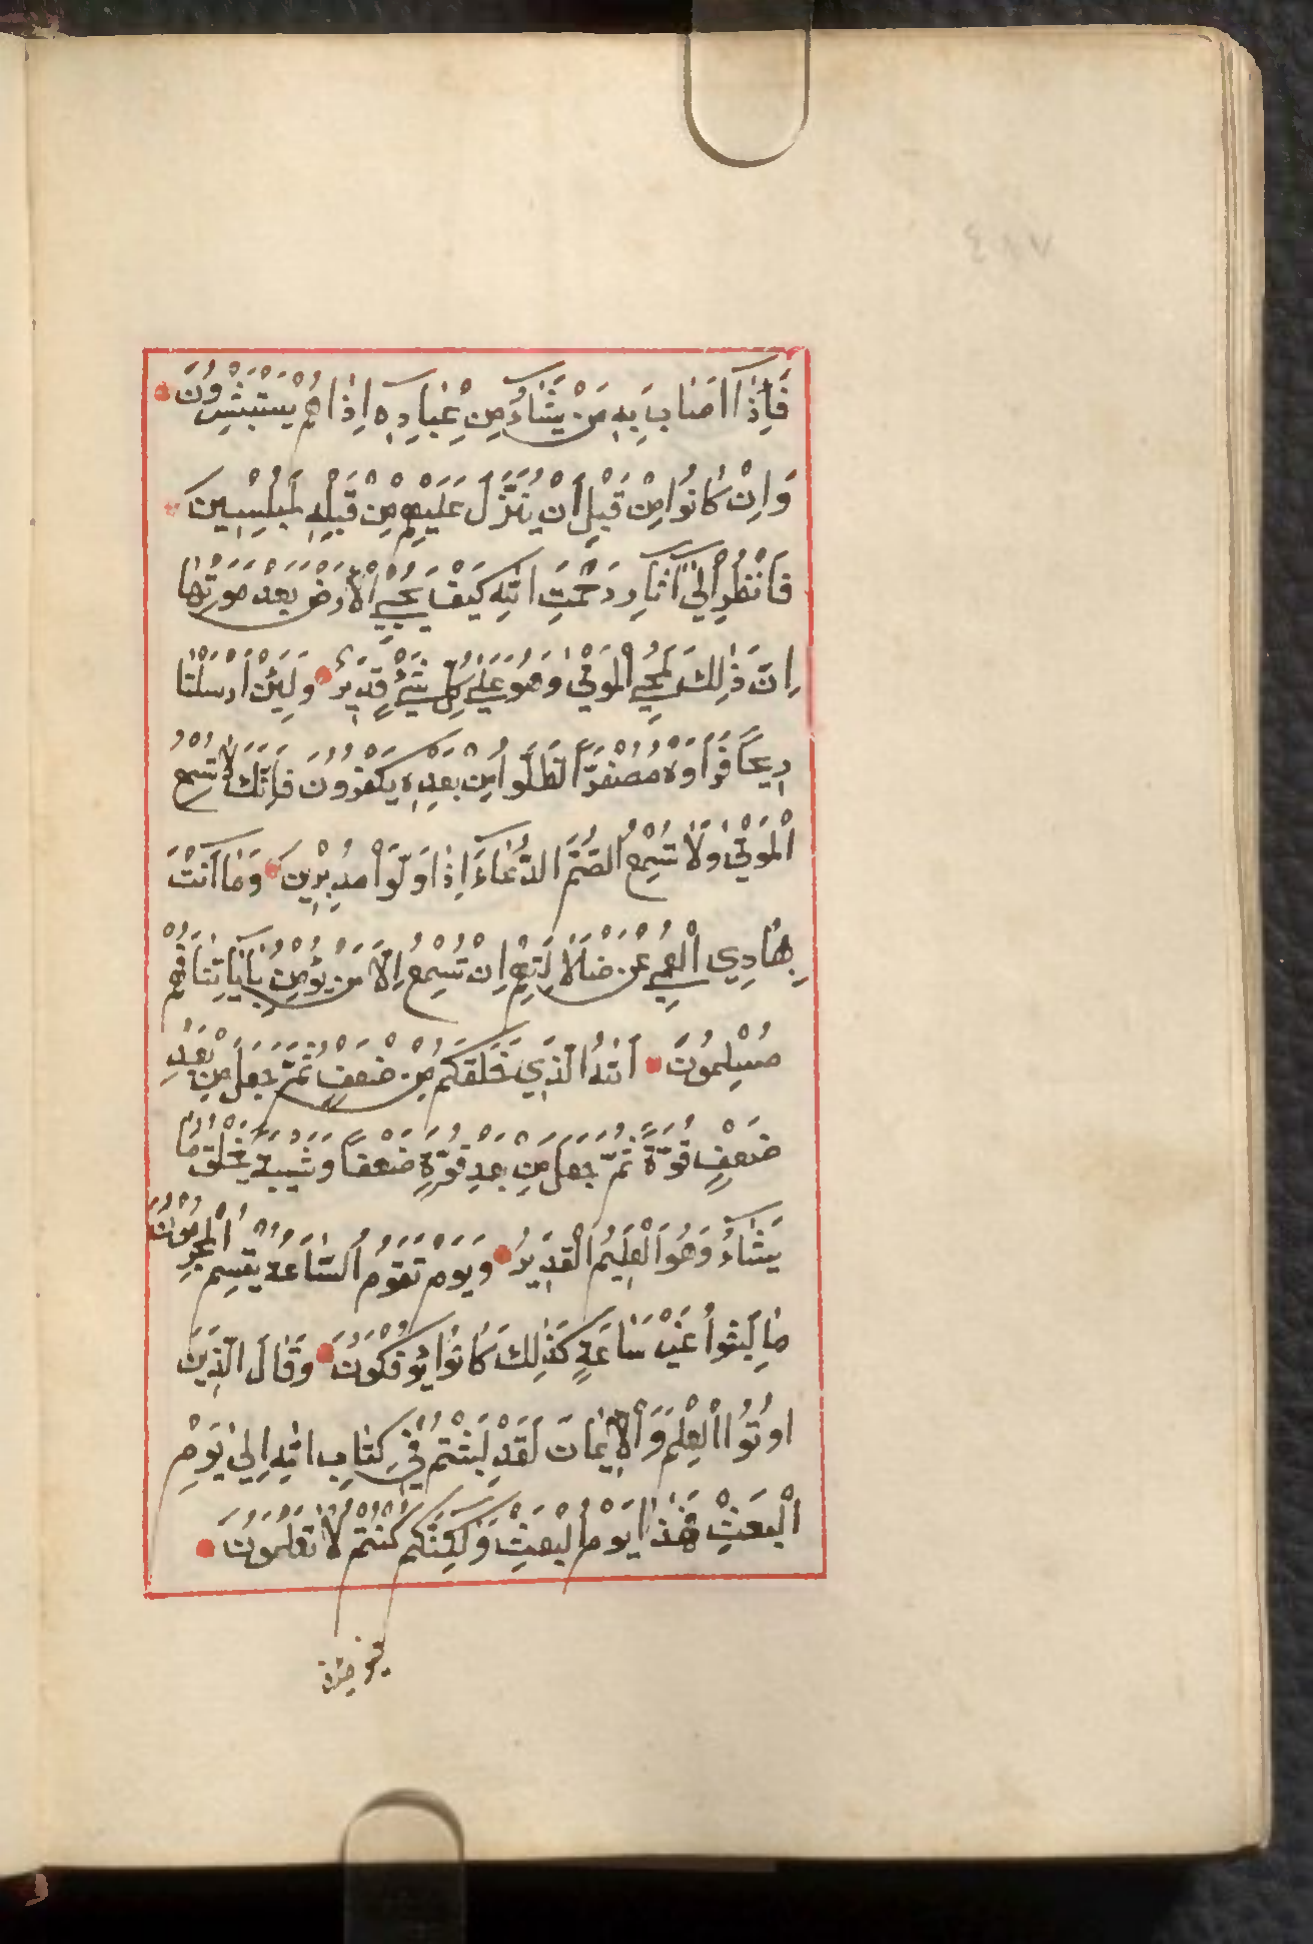 فَإِذَا أَصَابَ بِهِ مَنْ يَشَاءُ مِنْ عِبَادِهِ إِذَا هُمْ يَسْتَبْشِرُونَ
وَإِنْ كَانُوا مِنْ قَبْلِ أَنْ يُنَزَّلَ عَلَيْهِمْ مِنْ قَبْلِهِ لَمُبْلِسِينَ
فَانْظُرْ إِلَىٰ آثَارِ رَحْمَتِ اللّٰهِ كَيْفَ يُحْيِي الْأَرْضَ بَعْدَ مَوْتِهَا
إِنَّ ذَٰلِكَ لَمُحْيِي الْمَوْتَىٰ وَهُوَ عَلَىٰ كُلِّ شَيْءٍ قَدِيرٌ وَلَئِنْ أَرْسَلْنَا
رِيحًا فَرَأَوْهُ مُصْفَرًّا لَظَلُّوا مِنْ بَعْدِهِ يَكْفُرُونَ فَإِنَّكَ لَا تُسْمِعُ
الْمَوْتَىٰ وَلَا تُسْمِعُ الصُّمَّ الدُّعَاءَ إِذَا وَلَّوْا مُدْبِرِينَ وَمَا أَنْتَ
بِهَادِي الْعُمْيِ عَنْ ضَلَالَتِهِمْ إِنْ تُسْمِعُ إِلَّا مَنْ يُؤْمِنُ بِآيَاتِنَا فَهُمْ
مُسْلِمُونَ اَللّٰهُ الَّذِي خَلَقَكُمْ مِنْ ضَعْفٍ ثُمَّ جَعَلَ مِنْ بَعْدِ
ضَعْفٍ قُوَّةً ثُمَّ جَعَلَ مِنْ بَعْدِ قُوَّةٍ ضَعْفًا وَشَيْبَةً يَخْلُقُ مَا
يَشَاءُ وَهُوَ الْعَلِيمُ الْقَدِيرُ وَيَوْمَ تَقُومُ السَّاعَةُ يُقْسِمُ الْمُجْرِمُونَ
مَا لَبِثُوا غَيْرَ سَاعَةٍ كَذَٰلِكَ كَانُوا يُؤْفَكُونَ وَقَالَ الَّذِينَ
أُوتُوا الْعِلْمَ وَالْإِيمَانَ لَقَدْ لَبِثْتُمْ فِي كِتَابِ اللّٰهِ إِلَىٰ يَوْمِ
الْبَعْثِ فَهَٰذَا يَوْمُ الْبَعْثِ وَلَٰكِنَّكُمْ كُنْتُمْ لَا تَعْلَمُونَ